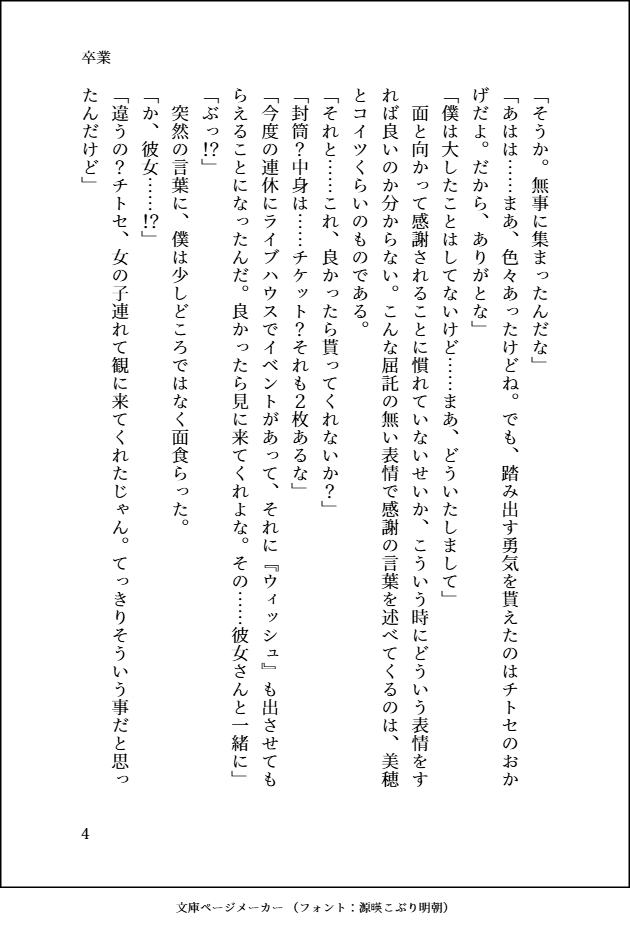 卒業
「そうか。無事に集まったんだな」
「あはは……まあ、色々あったけどね。でも、踏み出す勇気を貰えたのはチトセのおか
げだよ。だから、ありがとな」
「僕は大したことはしてないけど……まあ、どういたしまして」
　面と向かって感謝されることに慣れていないせいか、こういう時にどういう表情をす
れば良いのか分からない。こんな屈託の無い表情で感謝の言葉を述べてくるのは、美穂
とコイツくらいのものである。
「それと……これ、良かったら貰ってくれないか？」
「封筒？中身は……チケット？それも２枚あるな」
「今度の連休にライブハウスでイベントがあって、それに『ウィッシュ』も出させても
らえることになったんだ。良かったら見に来てくれよな。その……彼女さんと一緒に」
「ぶっ!?」
　突然の言葉に、僕は少しどころではなく面食らった。
「か、彼女……!?」
「違うの？チトセ、女の子連れて観に来てくれたじゃん。てっきりそういう事だと思っ
たんだけど」
4
文庫ページメーカー（フォント：源暎こぶり明朝）